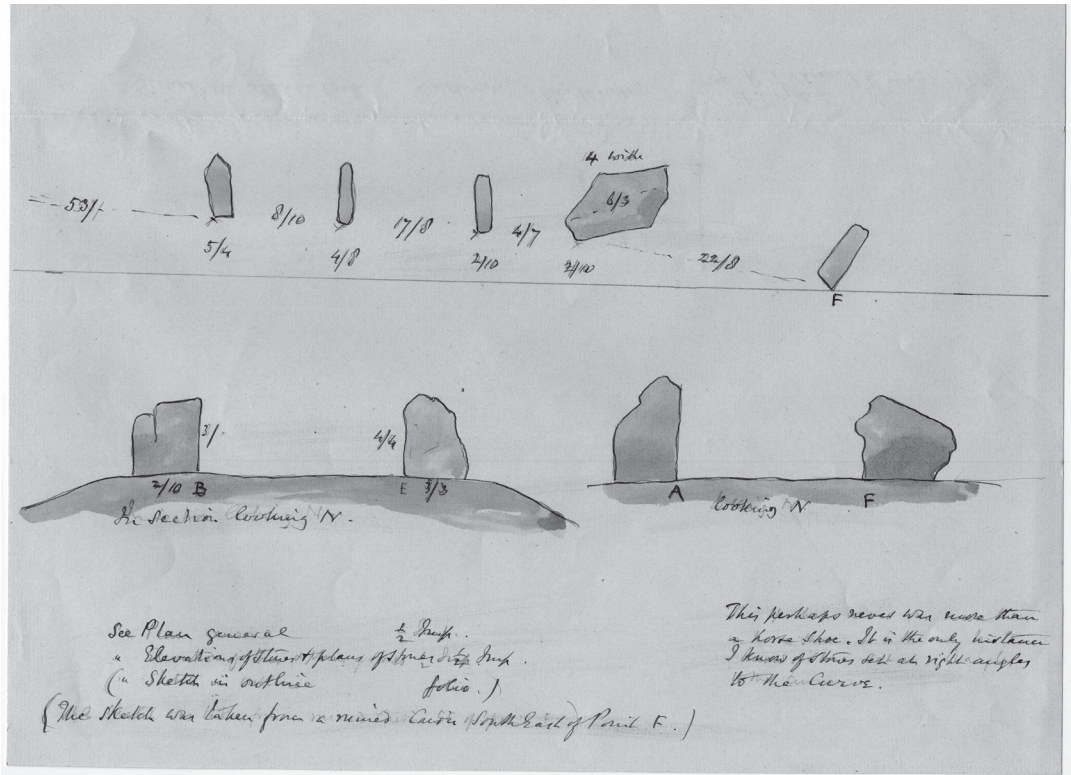 4 with
53/-
8/10
17/8
4/7
6/3
22/8
5/4
4/8
2/10
2/10
F
3/-
4/4
2/10 B
E 3/3
A
F
In section looking N.
looking N
See Plan general ½ Imp.
" Elevations of stones & plans of stones ½ Imp.
(" Sketch in outline folio.)
(The sketch was taken from a ruined Cairn South East of Point F.)
This perhaps never was more than
a horse shoe. It is the only instance
I know of stones set at right angles
to the Curve.